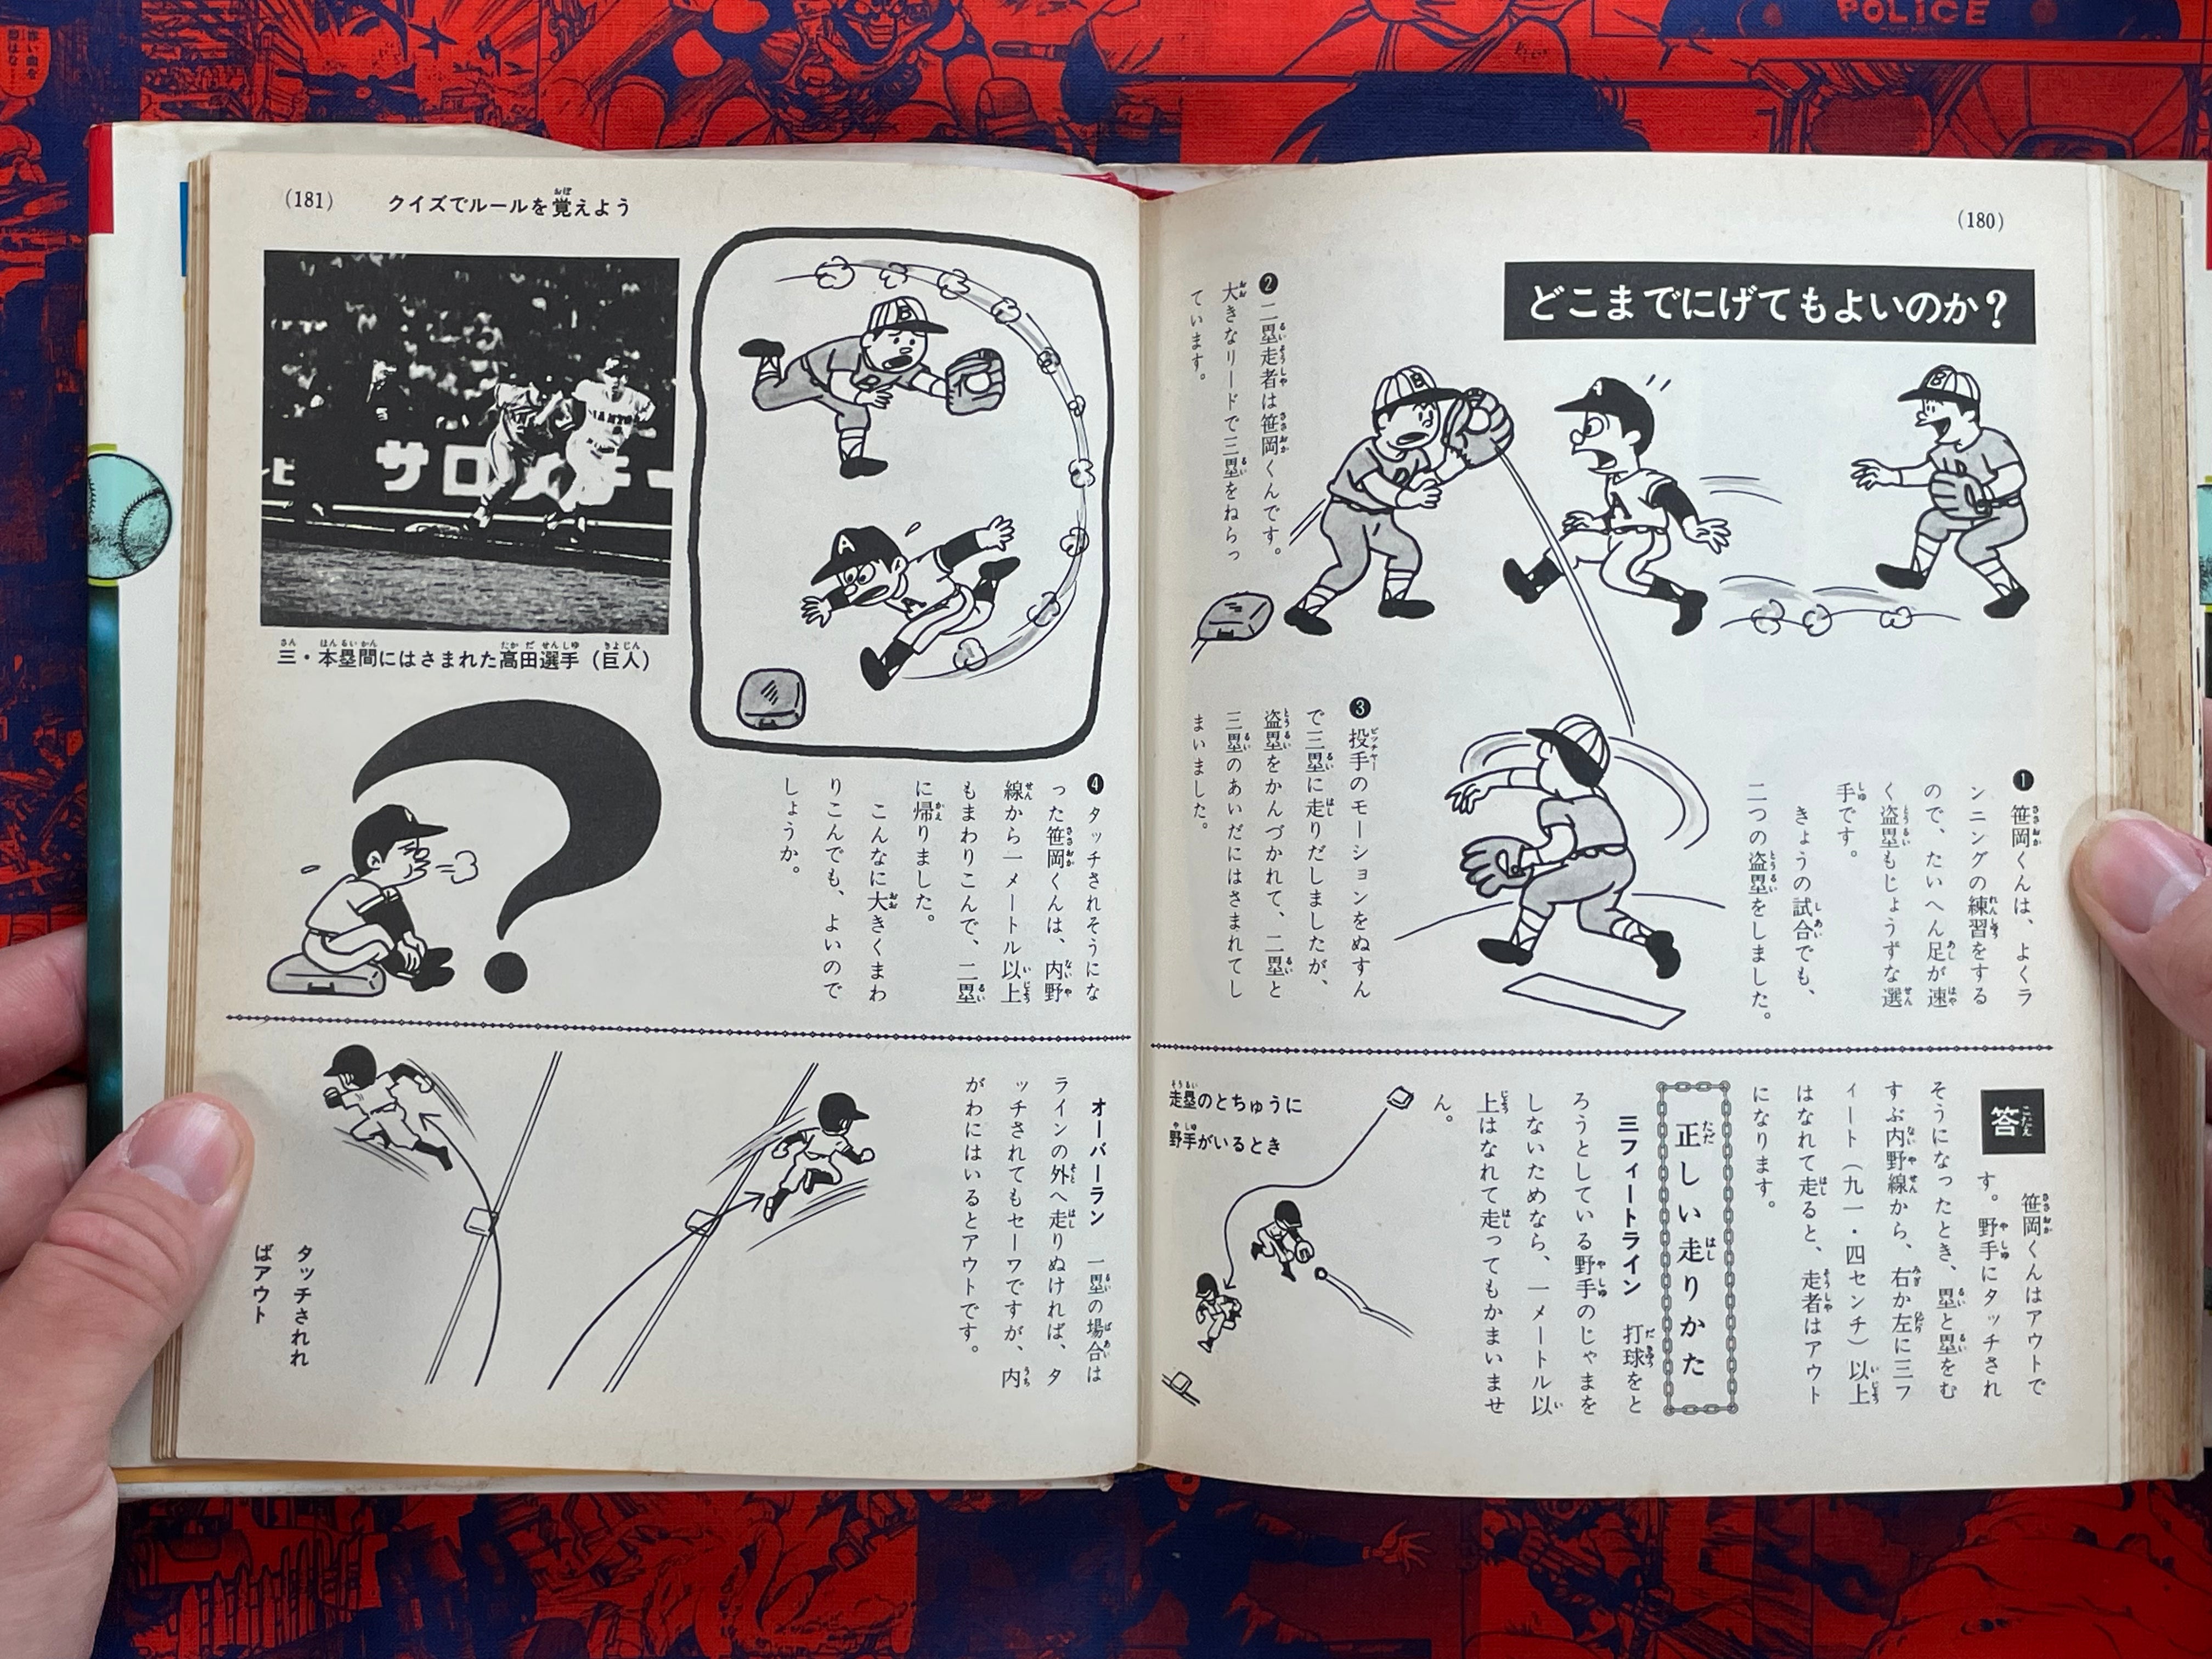 (180)
どこまでにげてもよいのか?
❶笹岡くんは、よくラ
ンニングの練習をする
ので、たいへん足が速
く盗塁もじょうずな選
手です。
きょうの試合でも、
二つの盗塁をしました。
❷二塁走者は笹岡くんです。
大きなリードで三塁をねらっ
ています。
❸投手のモーションをぬすん
で三塁に走りだしましたが、
盗塁をかんづかれて、二塁と
三塁のあいだにはさまれてし
まいました。
答
笹岡くんはアウトで
す。野手にタッチされ
そうになったとき、塁と塁をむ
すぶ内野線から、右か左に三フ
ィート(九一・四センチ)以上
はなれて走ると、走者はアウト
になります。
正しい走りかた
三フィートライン 打球をと
ろうとしている野手のじゃまを
しないためなら、一メートル以
上はなれて走ってもかまいませ
ん。
走塁のとちゅうに
野手がいるとき
(181)
クイズでルールを覚えよう
サロメチー
GIANTS
三・本塁間にはさまれた高田選手(巨人)
❹タッチされそうにな
った笹岡くんは、内野
線から一メートル以上
もまわりこんで、二塁
に帰りました。
こんなに大きくまわ
りこんでも、よいので
しょうか。
オーバーラン 一塁の場合は
ラインの外へ走りぬければ、タ
ッチされてもセーフですが、内
がわにはいるとアウトです。
タッチされれ
ばアウト
POLICE